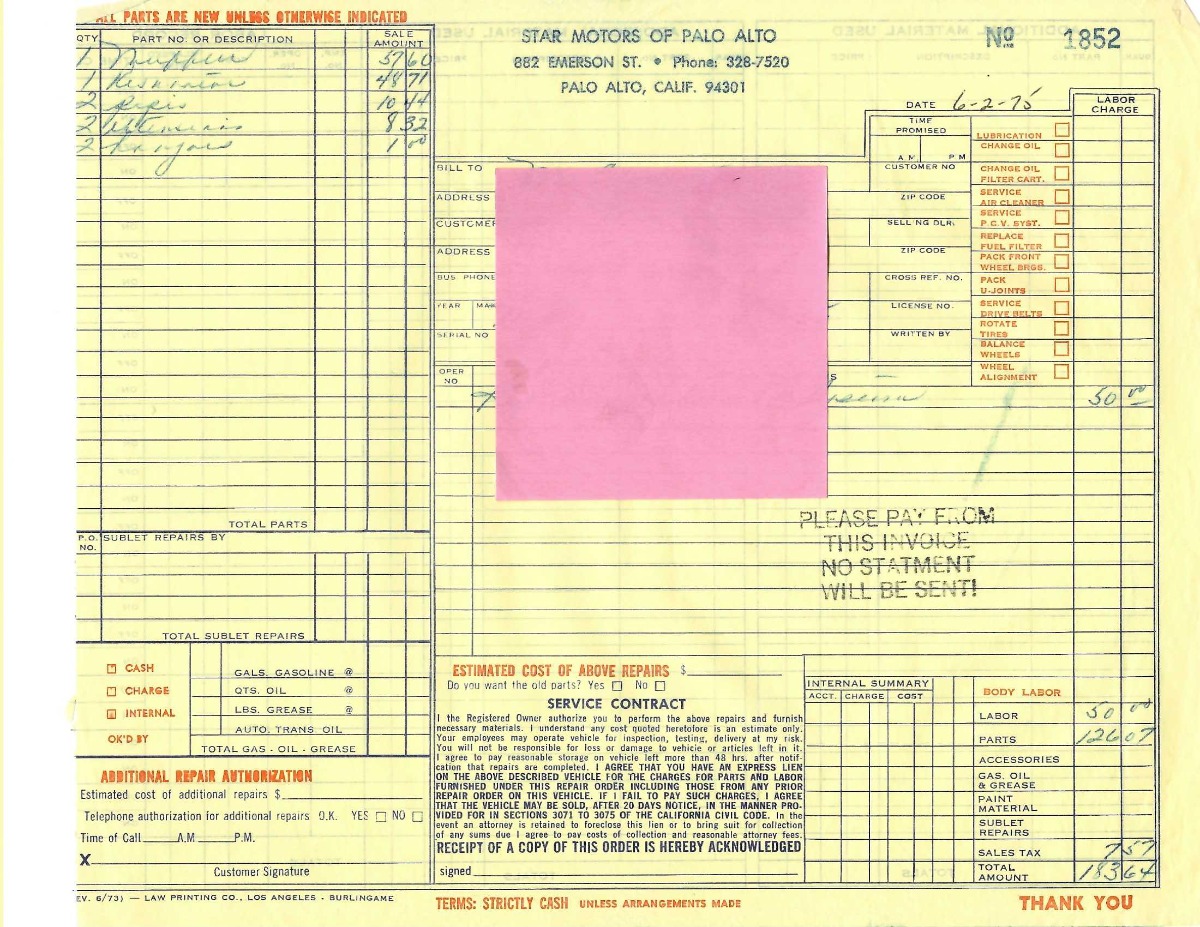 ALL PARTS ARE NEW UNLESS OTHERWISE INDICATED
QTY. PART NO. OR DESCRIPTION SALE AMOUNT
1 Muffler 57 60
1 Resonator 48 71
2 pipes 10 44
2 8 32
2 hangers 1 00
TOTAL PARTS
P.O. NO. SUBLET REPAIRS BY
TOTAL SUBLET REPAIRS
CASH
CHARGE
INTERNAL
OK'D BY
GALS. GASOLINE @
QTS. OIL @
LBS. GREASE @
AUTO. TRANS OIL
TOTAL GAS - OIL - GREASE
ADDITIONAL REPAIR AUTHORIZATION
Estimated cost of additional repairs $
Telephone authorization for additional repairs O.K. YES NO
Time of Call A.M. P.M.
X
Customer Signature
EV. 6/73) — LAW PRINTING CO., LOS ANGELES - BURLINGAME
STAR MOTORS OF PALO ALTO
882 EMERSON ST. • Phone: 328-7520
PALO ALTO, CALIF. 94301
No 1852
DATE 6-2-75
LABOR CHARGE
TIME PROMISED
A.M. P.M.
BILL TO
CUSTOMER NO
ADDRESS
ZIP CODE
CUSTOMER
SELLING DLR.
ADDRESS
ZIP CODE
BUS. PHONE
CROSS REF. NO.
YEAR
LICENSE NO.
SERIAL NO
WRITTEN BY
OPER NO
LUBRICATION
CHANGE OIL
CHANGE OIL FILTER CART.
SERVICE AIR CLEANER
SERVICE P.C.V. SYST.
REPLACE FUEL FILTER
PACK FRONT WHEEL BRGS.
PACK U-JOINTS
SERVICE DRIVE BELTS
ROTATE TIRES
BALANCE WHEELS
WHEEL ALIGNMENT
50 00
PLEASE PAY FROM
THIS INVOICE
NO STATMENT
WILL BE SENT!
ESTIMATED COST OF ABOVE REPAIRS $
Do you want the old parts? Yes No
SERVICE CONTRACT
I the Registered Owner authorize you to perform the above repairs and furnish
necessary materials. I understand any cost quoted heretofore is an estimate only.
Your employees may operate vehicle for inspection, testing, delivery at my risk.
You will not be responsible for loss or damage to vehicle or articles left in it.
I agree to pay reasonable storage on vehicle left more than 48 hrs. after notifi-
cation that repairs are completed. I AGREE THAT YOU HAVE AN EXPRESS LIEN
ON THE ABOVE DESCRIBED VEHICLE FOR THE CHARGES FOR PARTS AND LABOR
FURNISHED UNDER THIS REPAIR ORDER INCLUDING THOSE FROM ANY PRIOR
REPAIR ORDER ON THIS VEHICLE. IF I FAIL TO PAY SUCH CHARGES, I AGREE
THAT THE VEHICLE MAY BE SOLD, AFTER 20 DAYS NOTICE, IN THE MANNER PRO-
VIDED FOR IN SECTIONS 3071 TO 3075 OF THE CALIFORNIA CIVIL CODE. In the
event an attorney is retained to foreclose this lien or to bring suit for collection
of any sums due I agree to pay costs of collection and reasonable attorney fees.
RECEIPT OF A COPY OF THIS ORDER IS HEREBY ACKNOWLEDGED
signed
INTERNAL SUMMARY
ACCT. CHARGE COST
BODY LABOR
LABOR 50 00
PARTS 126 07
ACCESSORIES
GAS. OIL & GREASE
PAINT MATERIAL
SUBLET REPAIRS
SALES TAX 7 57
TOTAL AMOUNT 183 64
TERMS: STRICTLY CASH UNLESS ARRANGEMENTS MADE
THANK YOU